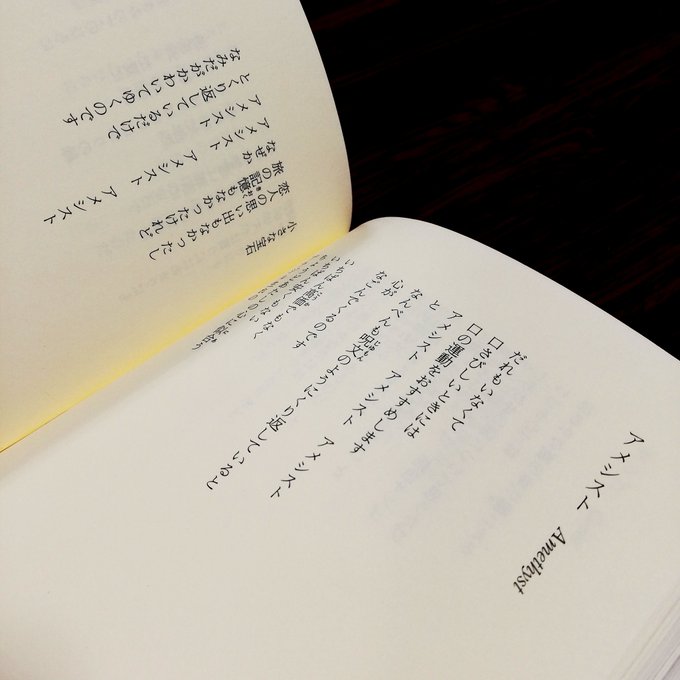 アメシスト Amethyst
だれもいなくて
口さびしいときには
口の運動をおすすめします
アメシスト アメシスト アメシスト
と
なんべんも呪文のようにくり返していると
心が
なごんでくるのです
いちばん高価でもなく
いちばん硬くもない
小さな宝石
恋人の思い出もなかったし
旅の記憶もなかったけれど
なぜか
アメシスト アメシスト アメシスト
とくり返しているだけで
なみだがかわいてゆくのです